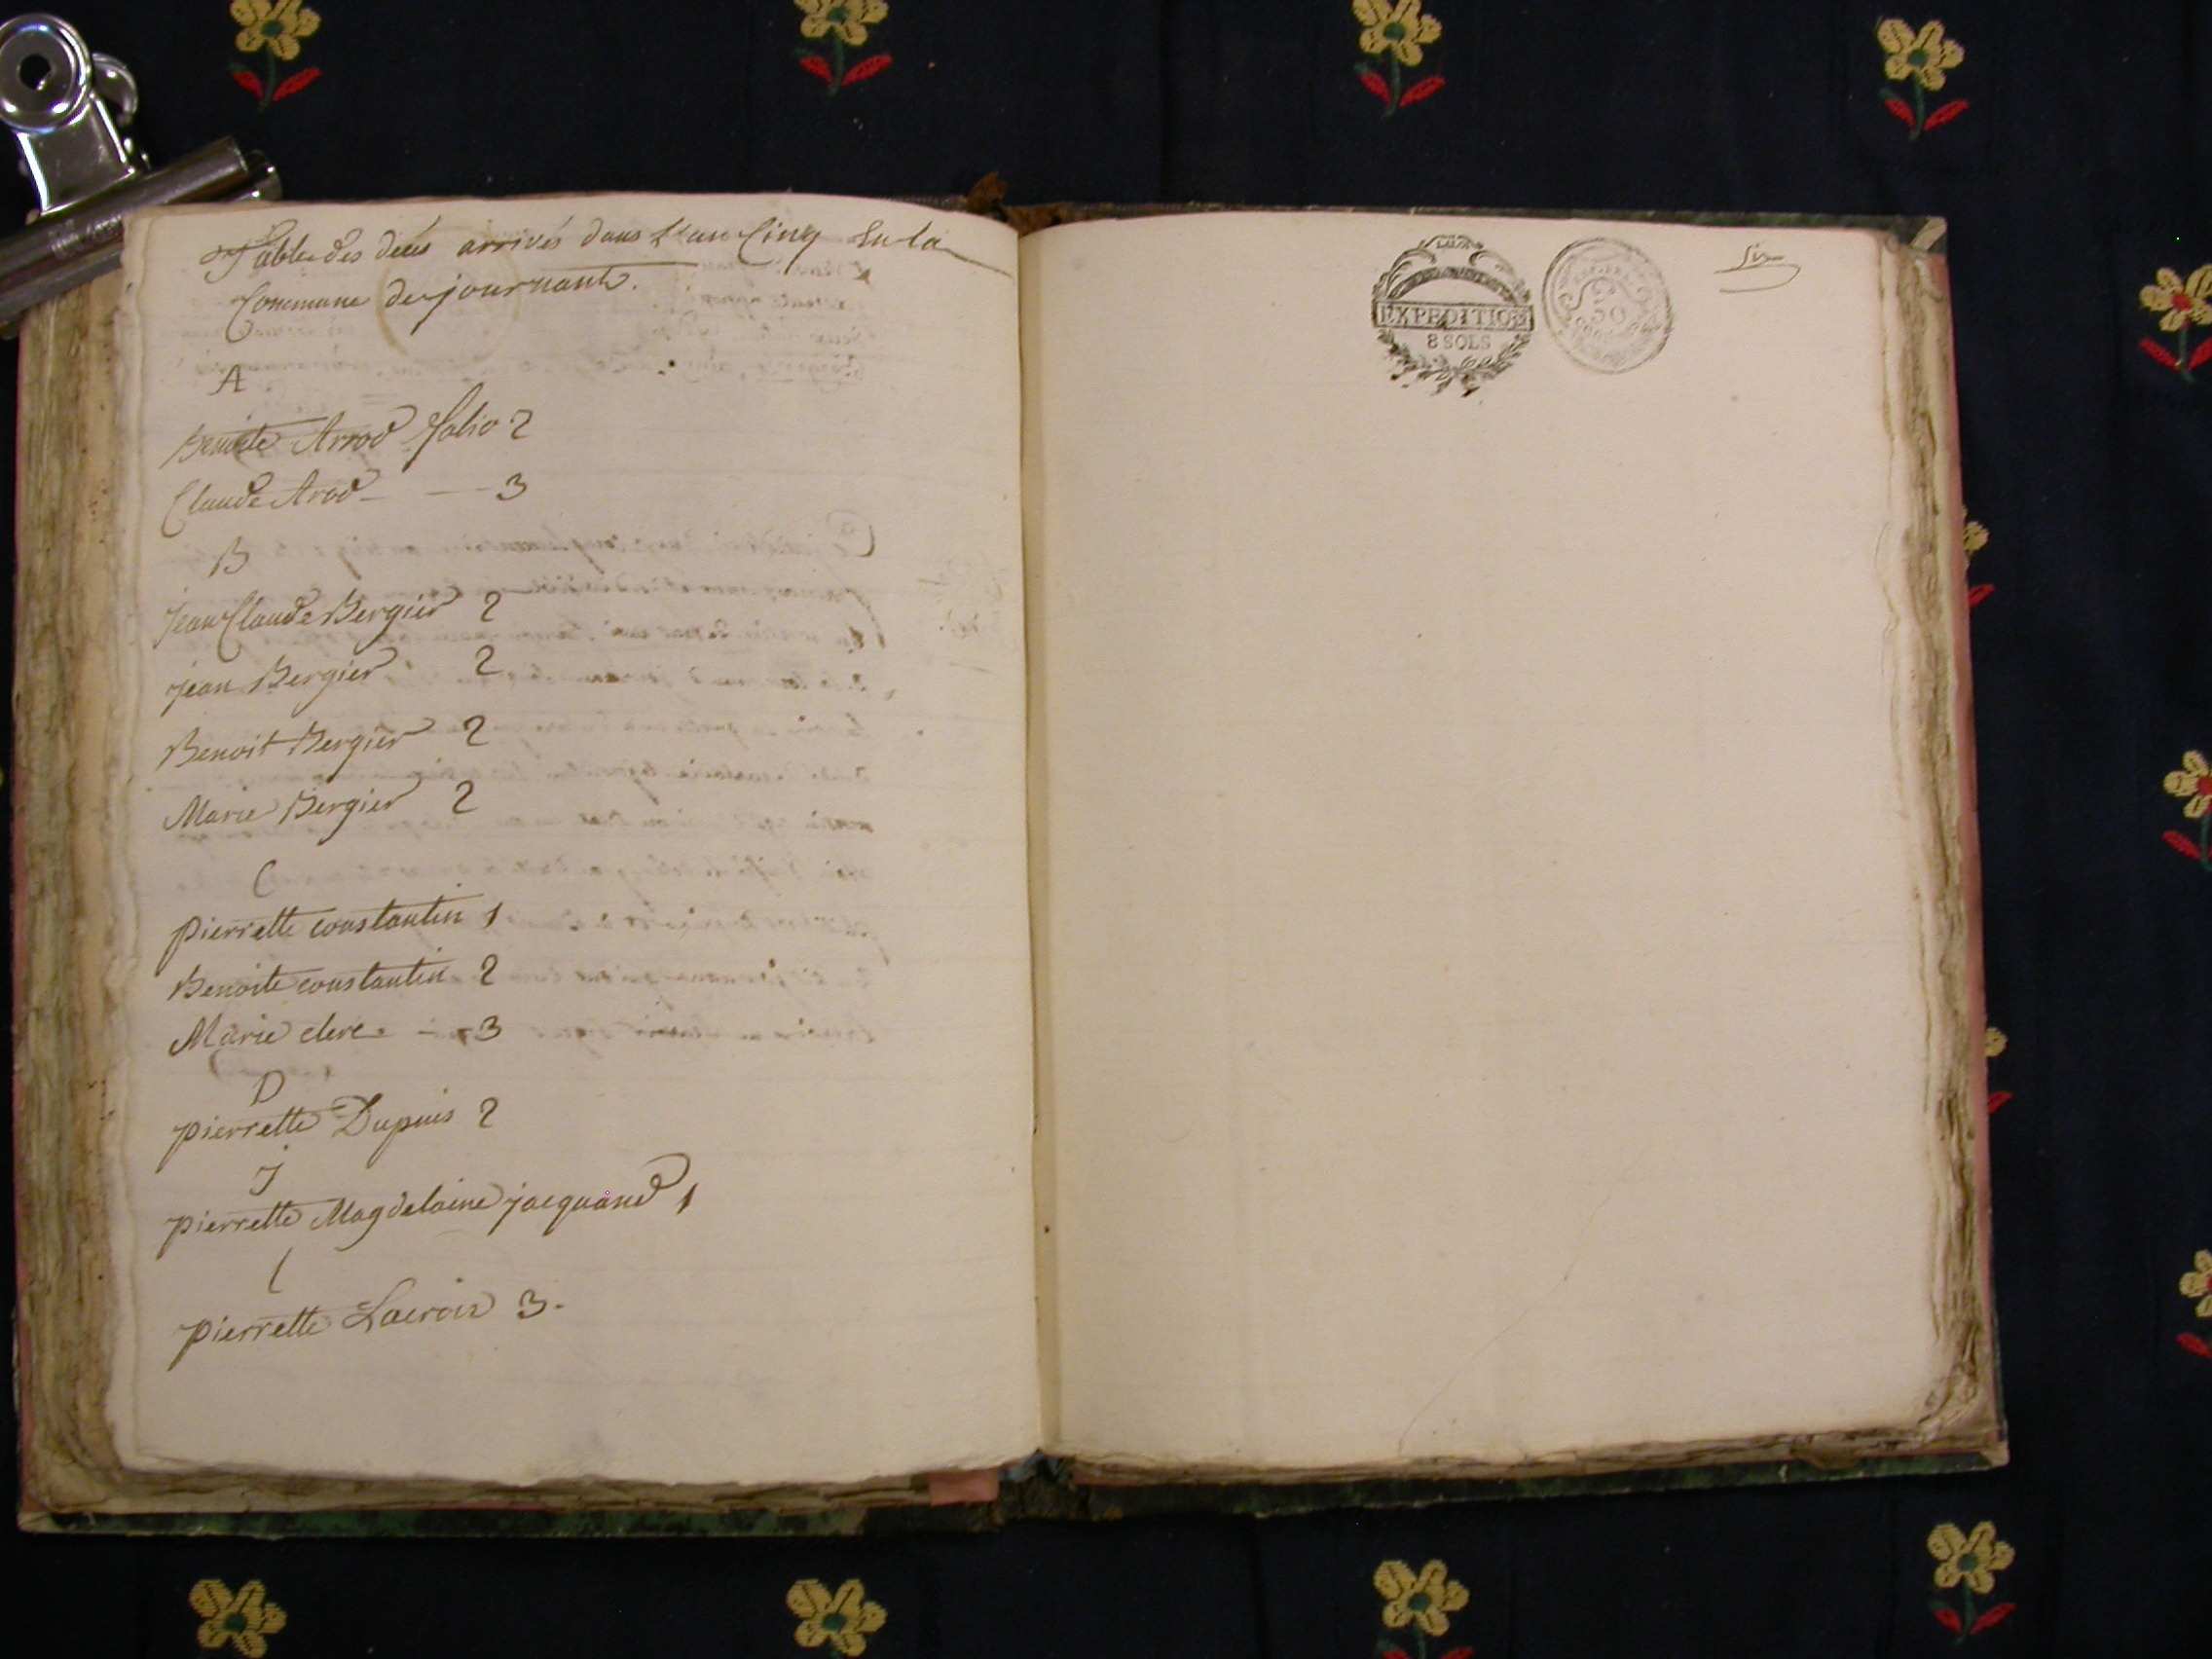 Table des décés arrivés dans L'an Cinq en la
Commune de journant.
A
Benoite Arrod folio 2
Claude Arod — 3
B
jean Claude Bergier 2
jean Bergier 2
Benoit Bergier 2
Marie Bergier 2
C
pierrette constantin 1
Benoite constantin 2
Marie clerc - 3
D
pierrette Dupuis 2
J
pierrette Magdelaine jacquand 1
L
pierrette Lacroix 3.
EXPEDITION
8 SOLS
50
six